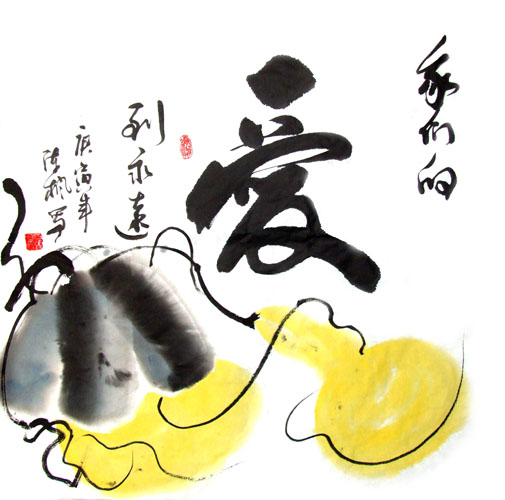 我们的
爱
到永远
庚寅年
陈枫写